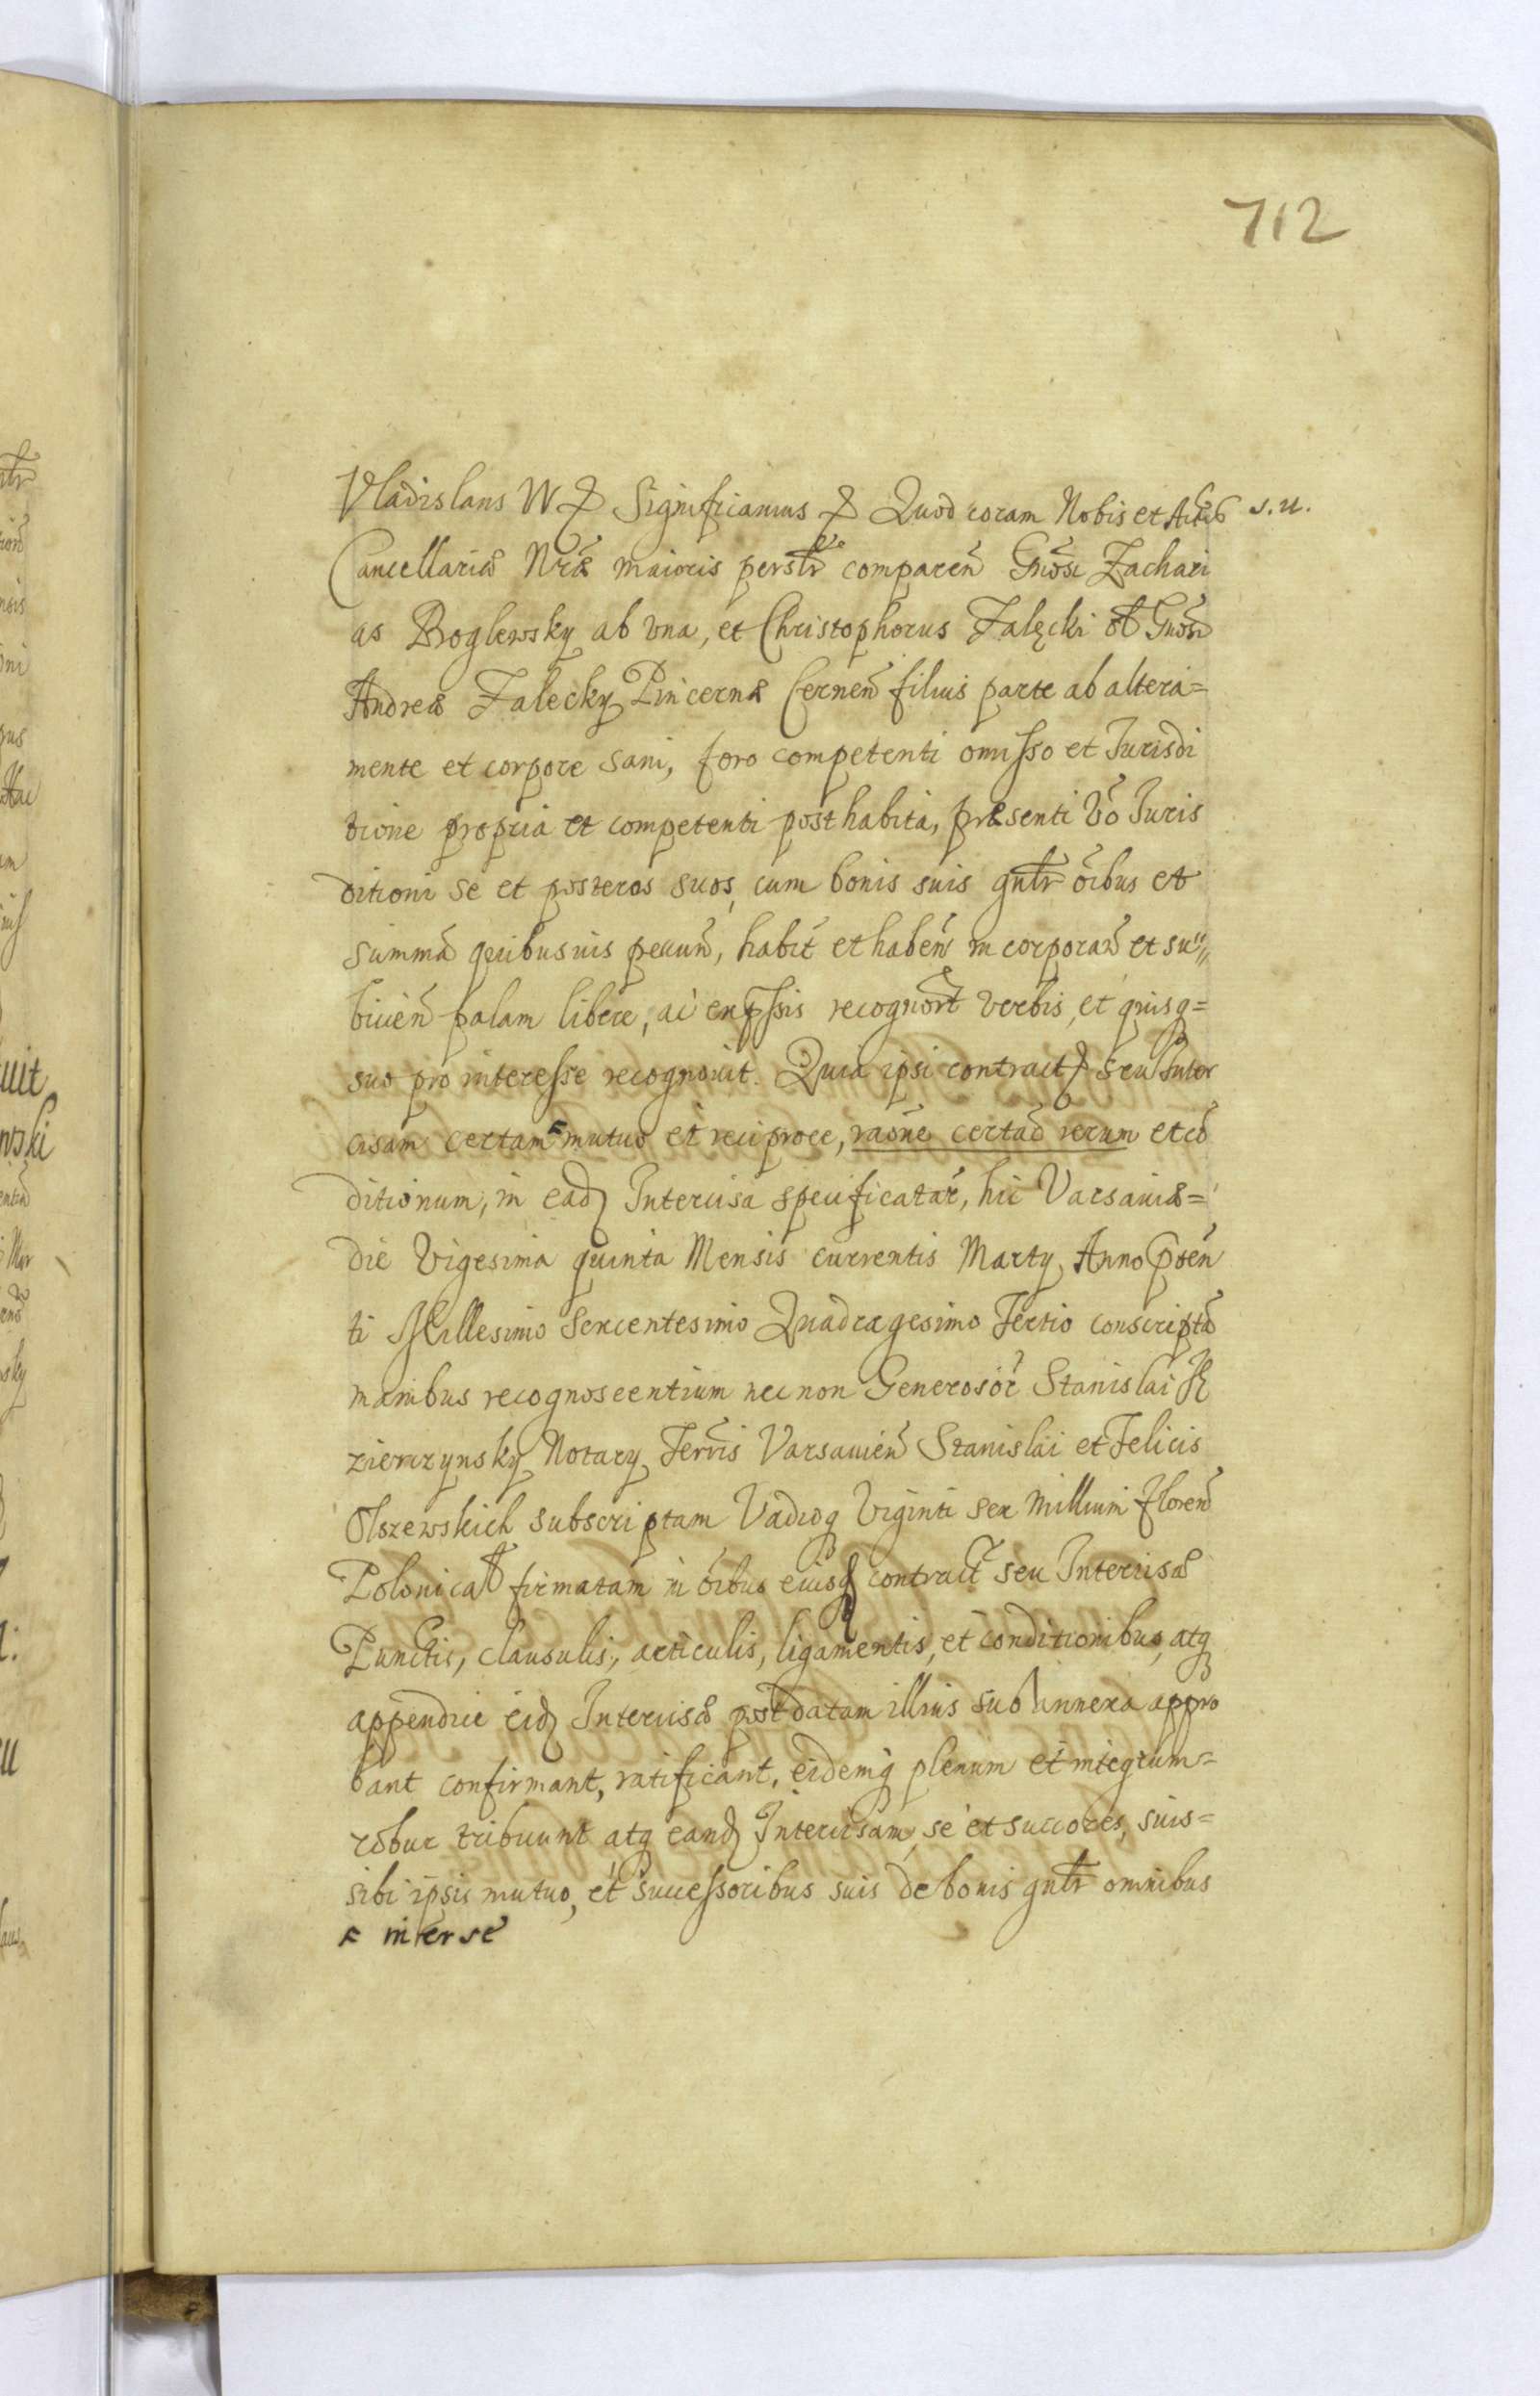 712
Vladislaus IV & Significamus & Quod coram Nobis et Actis s. u.
Cancellariæ Nræ maioris personlr comparen Gnosi Zachari
as Boglewsky ab vna, et Christophorus Falęcki olt Gnosi
Andreæ Falecky Pincernæ Cernen filius parte ab altera=
mente et corpore sani, foro competenti omisso et Jurisdi
tione propria et competenti posthabita, præsenti vo Juris
ditioni se et posteros suos, cum bonis suis gnlr oibus et
summa quibusuis pecun, habit et haben in corporan et su=
biicien palam libere, ac expssis recognort verbis, et quisq=
suo pro interesse recognouit. Quia ipsi contract seu Inter
cisam certam ⌜ mutuo et reciproce, raone certar rerum et co
ditionum, in ead Intercisa specificatar, hic Varsaviæ=
die Vigesima quinta Mensis currentis Marty Anno pñen
ti Millesimo Sexcentesimo Quadragesimo Tertio conscripta
manibus recognoscentium nec non Generosor Stanislai K
zierczynsky Notary Terris Varsavien Stanislai et Felicis
Olszewskich subscriptam Vadioq Viginti sex Millium floren
Polonicalt firmatam in oibus eiusq contract seu Intercisæ
Punctis, clausulis, articulis, ligamentis, et conditionibus, atq
appendice eid Intercisæ post datam illius sub annexa appro
bant confirmant, ratificant, eidemq plenum et integrum=
robur tribuunt atq eand Intercisam, se et succores, suis=
sibi ipsis mutuo, et successoribus suis de bonis gnlr omnibus
⌜ inter se